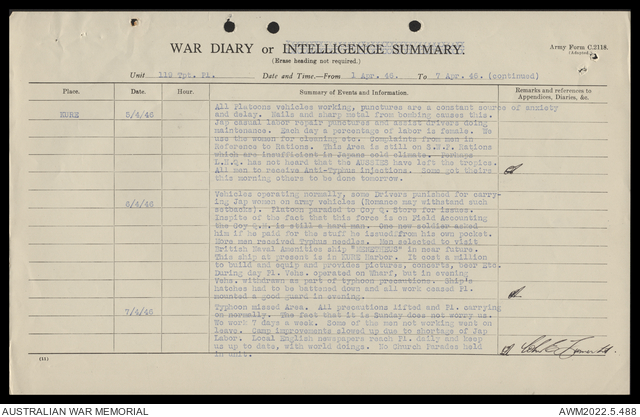 WAR DIARY or INTELLIGENCE SUMMARY.
(Erase heading not required.)
Army Form C.2118.
(Adapted)
Unit 119 Tpt. Pl. Date and Time.—From 1 Apr. 46. To 7 Apr. 46. (continued)
Place. Date. Hour. Summary of Events and Information. Remarks and references to Appendices, Diaries, &c.
KURE 5/4/46
All Platoons vehicles working, punctures are a constant source of anxiety
and delay. Nails and sharp metal from bombing causes this.
Jap casual labor repair punctures and assist drivers doing
maintenance. Each day a percentage of labor is female. We
use the women for cleaning etc. Complaints from men in
Reference to Rations. This Area is still on S.W.P. Rations
which are insufficient in Japans cold climate. Perhaps
L.H.Q. has not heard that the AUSSIES have left the tropics.
All men to receive Anti-Typhus injections. Some got theirs
this morning others to be done tomorrow.
6/4/46
Vehicles operating normally, some Drivers punished for carry-
ing Jap women on army vehicles (Romance may withstand such
setbacks). Platoon paraded to Coy Q. Store for issues.
Inspite of the fact that this force is on Field Accounting
the Coy Q.M. is still a hard man. One new soldier asked
him if he paid for the stuff he issued from his own pocket.
More men received Typhus needles. Men selected to visit
British Naval Amenities ship in near future.
This ship at present is in KURE Harbor. It cost a million
to build and equip and provides pictures, concerts, beer Etc.
During day Pl. Vehs. operated on Wharf, but in evening
Vehs. withdrawn as part of typhoon precautions. Ship's
hatches had to be battened down and all work ceased Pl.
mounted a good guard in evening.
7/4/46
Typhoon missed Area. All precautions lifted and Pl. carrying
on normally. The fact that it is Sunday does not worry us.
We work 7 days a week. Some of the men not working went on
leave. Camp improvements slowed up due to shortage of Jap
Labor. Local English newspapers reach Pl. daily and keep
us up to date, with world doings. No Church Parades held
in unit.
(11)
AUSTRALIAN WAR MEMORIAL
AWM2022.5.488